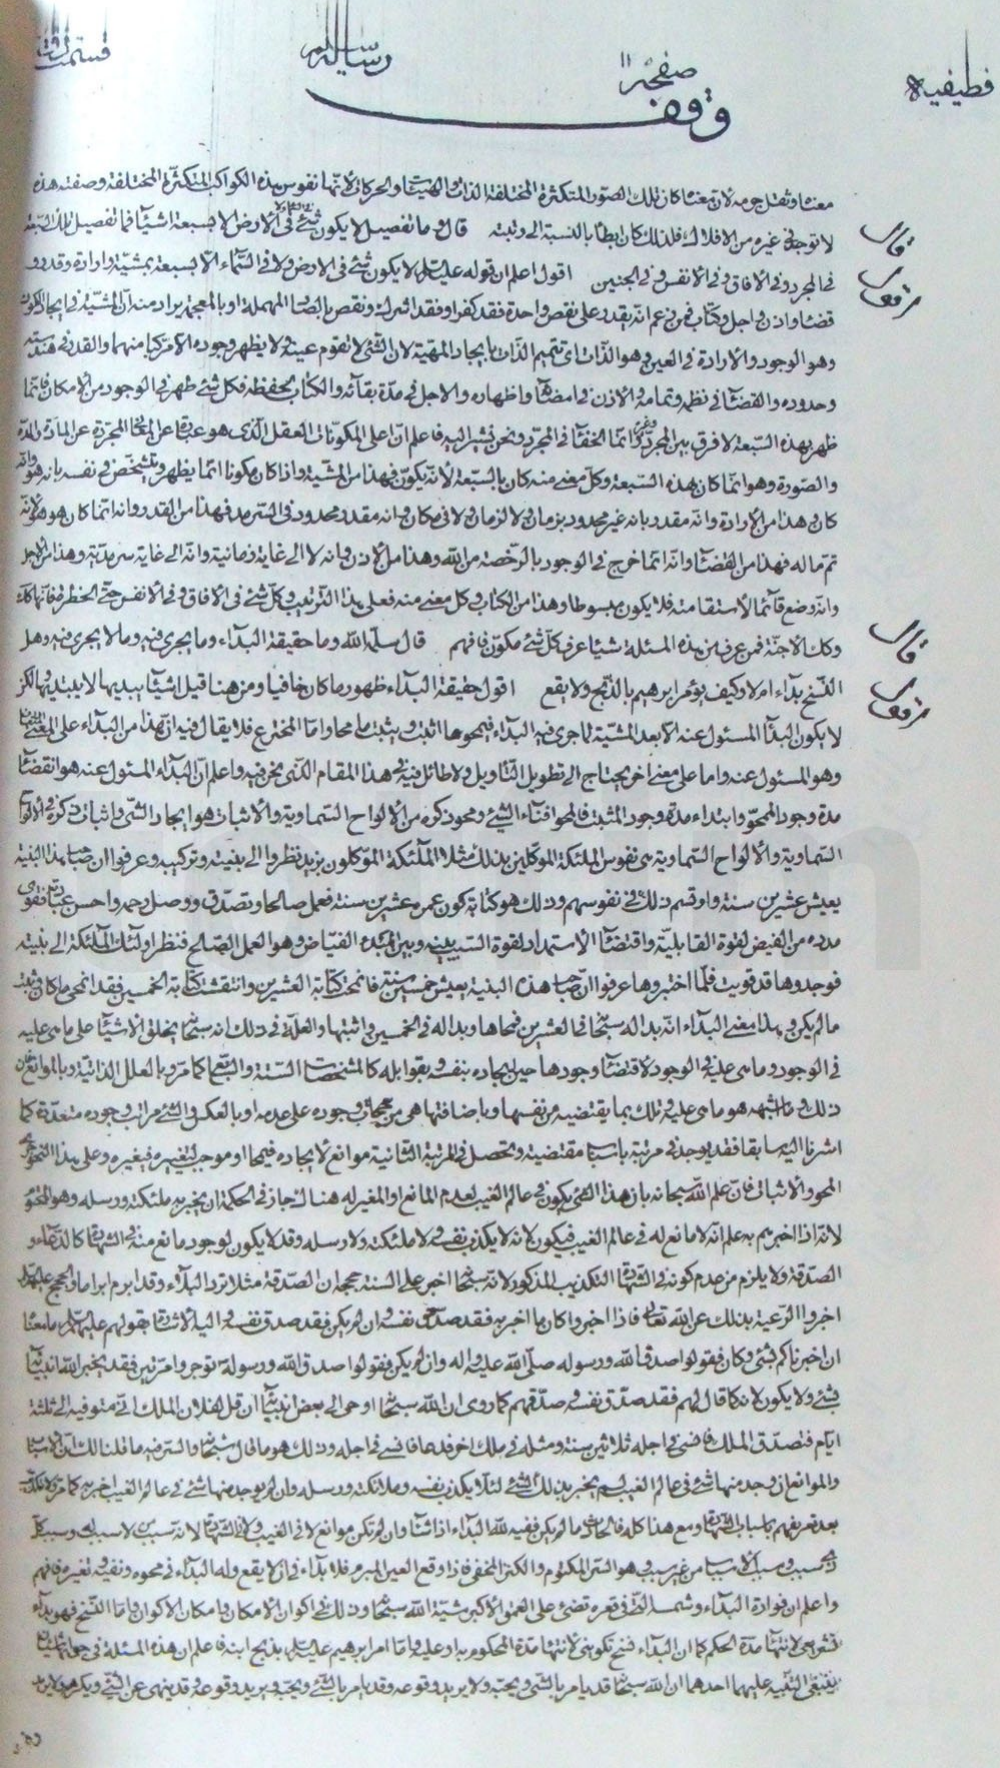 قطيفيه
رساله
صفحه ١١
وقف
معناه وثقل جرمه لان معناه كان تلك الصور المتكثرة المختلفة الذات والهيئات والحركات لانها نفوس هذه الكواكب المتكثرة المختلفة وصفته هذه
لا توجد في غيره من الافلاك فلذلك كان ابطأ بالنسبة الى رتبته قال وما تفصيل لا يكون شئ في الارض الا بسبعة اشياء فما تفصيل تلك السبعة
في المجرد وفي الافاق وفي الانفس وفي الجنين اقول اعلم ان قوله عليه السلام لا يكون شئ في الارض ولا في السماء الا بسبعة بمشية وارادة وقدر و
قضاء واذن واجل وكتاب فمن زعم انه يقدر على نقص واحدة فقد كفر او فقد اشرك ونقص بالصاد المهملة او بالمعجمة يراد منه ان المشية في ايجاد الكون
وهو الوجود والارادة في العين وهو الذات اى تتميم الذات بايجاد المهية لان الشئ لا تقوم عينه ولا يظهر وجوده الا مركبا منهما والقدر في هندسته
وحدوده والقضاء في نظمه وتمامه والاذن في امضائه واظهاره والاجل في مدة بقائه والكتاب لحفظه فكل شئ ظهر في الوجود من الامكان فانما
ظهر بهذه السبعة لا فرق بين المجرد وغيره وانما الخفاء في المجرد ونحن نشير اليه فاعلم ان اعلى المكونات العقل الذى هو عبارة عن المعانى المجردة عن المادة والمدة
والصورة وهو انما كان بهذه السبعة وكل معنى منه كان بالسبعة لانه يكون فهذا من المشية واذا كان مكونا انما يظهر ويتشخص في نفسه بانه هو وانه
كان وهذا من الارادة وانه مقدر بانه غير محدود بزمان ولا لزمان ولا في مكان وانه مقدر محدود في السرمد فهذا من القدر وانه انما كان هو هو لانه
تم ماله فهذا من القضاء وانه انما خرج في الوجود بالرخصة من الله وهذا من الاذن وانه لا الى غاية زمانية وانه الى غاية سرمدية وهذا من الاجل
وانه وضع قائما لاستقامته فلا يكون مبسوطا وهذا من الكتاب وكل معنى منه فعلى هذا الترتيب وكل شئ في الافاق وفي الانفس حتى الخطرة فانها كذلك
وكذلك الاجنة فمن عرف من هذه المسئلة شيئا عرف كل شئ مكون فافهم قال سلمه الله وما حقيقة البداء وما يجرى فيه وما لا يجرى فيه وهل
النسخ بداء ام لا وكيف يؤمر ابرهيم بالذبح ولا يقع اقول حقيقة البداء ظهور ما كان خافيا ومن هنا قيل اشياء يبديها لا يبتديها لكن
لا يكون البداء المسئول عنه الا بعد المشية لما جرى فيه البداء فيمحو ما اثبت ويثبت ما محا واما المخترع فلا يقال فيه ان هذا من البداء على المعنى
وهو المسئول عنه واما على معنى اخر يحتاج الى تطويل التاويل ولا طائل فيه في هذا المقام الذى نحن فيه واعلم ان البداء المسئول عنه هو انقضاء
مدة وجود الممحو وابتداء مدة وجود المثبت فالمحو افناء الشئ ومحو ذكره من الالواح السماوية والاثبات هو ايجاد الشئ واثبات ذكره في الالواح
السماوية والالواح السماوية هى نفوس الملئكة الموكلين بذلك مثلا الملئكة الموكلون بزيد نظروا الى بنيته وتركيبه وعرفوا ان صاحب هذا البنية
يعيش عشرين سنة وارتسم ذلك في نفوسهم وذلك هو كتابة كون عمره عشرين سنة فعمل صالحا وتصدق ووصل رحمه واحسن عبادته فقوى
مدده من الفيض لقوة القابلية واقتضاء الاستمداد لقوة السبب بينه وبين المبدء الفياض وهو العمل الصالح فنظر اولئك الملئكة الى بنيته
فوجدوها قد قويت فلما اختبروها عرفوا ان صاحب هذه البنية يعيش خمسين سنة فانمحت كتابة العشرين وانتقشت كتابة الخمسين فقد انمحى ما كان وثبت
مالم يكن وهذا معنى البداء انه بدا له سبحانه في العشرين فمحاها وبدا له في الخمسين واثبتها والعلة في ذلك انه سبحانه يخلق الاشياء على ما هى عليه
في الوجود وما هى عليه في الوجود لاقتضاء وجودها حين ايجاده بنفسه وبقوابله كالمشخصات الستة والتسع كما مر وبالعلل الذاتية وبالموانع من
ذلك وما اشبهه هو ما هى عليه وتلك بما يقتضيه من نفسها وباضافتها هى مرجحات وجوده على عدمه او بالعكس والشئ مراتب وجوده متعددة كما
اشرنا اليه سابقا فقد يوجد في مرتبة باسباب مقتضية وتحصل في المرتبة الثانية موانع لايجاده فيمحا او موجب لتغييره فيغيره وعلى هذا النحو
المحو والاثبات فان علم الله سبحانه بان هذا الشئ يكون في عالم الغيب لعدم المانع او المغير له هناك جاز في الحكمة ان يخبر به ملئكته ورسله وهو المحتوم
لانه اذا اخبرهم به علم انه لا مانع له في عالم الغيب فيكون لانه لا يكذب نفسه ولا ملئكته ولا رسله وقد لا يكون لوجود مانع منه في الشهادة كالدعاء و
الصدقة ولا يلزم من عدم كونه في الشهادة التكذيب المذكور لانه سبحانه اخبر على السنة حججه ان الصدقة مثلا ترد البلاء وقد ابرم ابراما والحجج عليهم السلام
اخبروا الرعية بذلك عن الله تعالى فاذا اخبروا كان ما اخبر به فقد صدق نفسه وان لم يكن فقد صدق نفسه واليه الاشارة بقولهم عليهم السلام ما معناه
ان اخبرناكم بشئ وكان فقولوا صدق الله ورسوله صلى الله عليه واله وان لم يكن فقولوا صدق الله ورسوله توجروا مرتين فقد يخبر الله انبيائه
بشئ ولا يكون لانه كما قال لهم فقد صدق نفسه وصدقهم كما روى ان الله سبحانه اوحى الى بعض انبيائه ان قل لفلان الملك انى متوفيه الى ثلثة
ايام فتصدق الملك فانسئ في اجله ثلاثين سنة ومثله في ملك اخر فدعا فانسئ في اجله وذلك هو ما قال سبحانه والسر فيه ما قلنا لك ان الاسباب
والموانع ان وجد منها شئ في عالم الغيب لم يخبر بذلك الشئ لئلا يكذب نفسه وملائكته ورسله وان لم يوجد منها شئ في عالم الغيب اخبر به كما مر
بعد تعريفهم باسباب الشهادة ومع هذا كله فالحادث ما لم يكن ففيه لله البداء اذا شاء وان لم تكن موانع لا في الغيب ولا في الشهادة لانه سبب من لا سبب له وسبب كل
ذى سبب ومسبب الاسباب من غير سبب وهو السر المكتوم والكنز المخفى فاذا وقع العين المبرم فلا بداء في ان لا يقع وله البداء في محوه ونفيه وتغييره فافهم
واعلم ان فوارة البداء وشمسه التى في قعره تضئ على العمق الاكبر مشية الله سبحانه وذلك في اكوان الامكان وامكان الاكوان واما النسخ فهو بداء
تشريعى لانتهاء مدة الحكم كما ان البداء نسخ تكوينى لانتهاء مدة المحكوم به او عليه واما امر ابرهيم عليه السلام بذبح ابنه فاعلم ان هذه المسئلة في جوابها شيئان
ينبغى التنبيه عليهما احدهما ان الله سبحانه قد يامر بالشئ ويحبه ولا يريد وقوعه وقد يامر بالشئ ويحبه ويريد وقوعه وقد ينهى عن الشئ ويكرهه ولا يريد
قال
اقول
قال
اقول